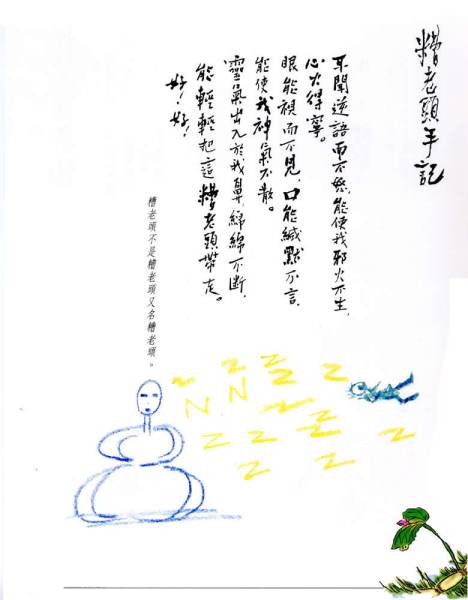 糟老頭手記
耳聞逆語而不怒,能使我邪火不生,
心火得寧。
眼能視而不見,口能緘默不言,
能使我神氣不散。
靈氣出入於我鼻,綿綿不斷,
能輕輕把這糟老頭帶走。
好!好!
糟老頭不是糟老頭又名糟老頭。
Z Z Z Z
N N Z
Z Z Z Z
Z Z Z